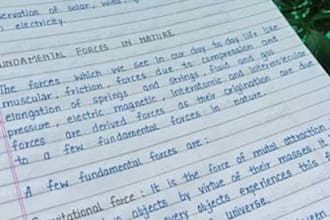 servation of solar, wind,
electricity
FUNDAMENTAL FORCES IN NATURE
The forces which we see in our day to day life like
muscular, friction, forces due to compression and
elongation of springs and strings, fluid and gas
pressure, electric magnetic, interatomic and intermolecular
forces are derived forces as their origination are due
to a few fundamental forces in nature.
A few fundamental forces are:
Gravitational force: It is the force of mutual attraction
objects by virtue of their masses. It
every object experiences this
universe.